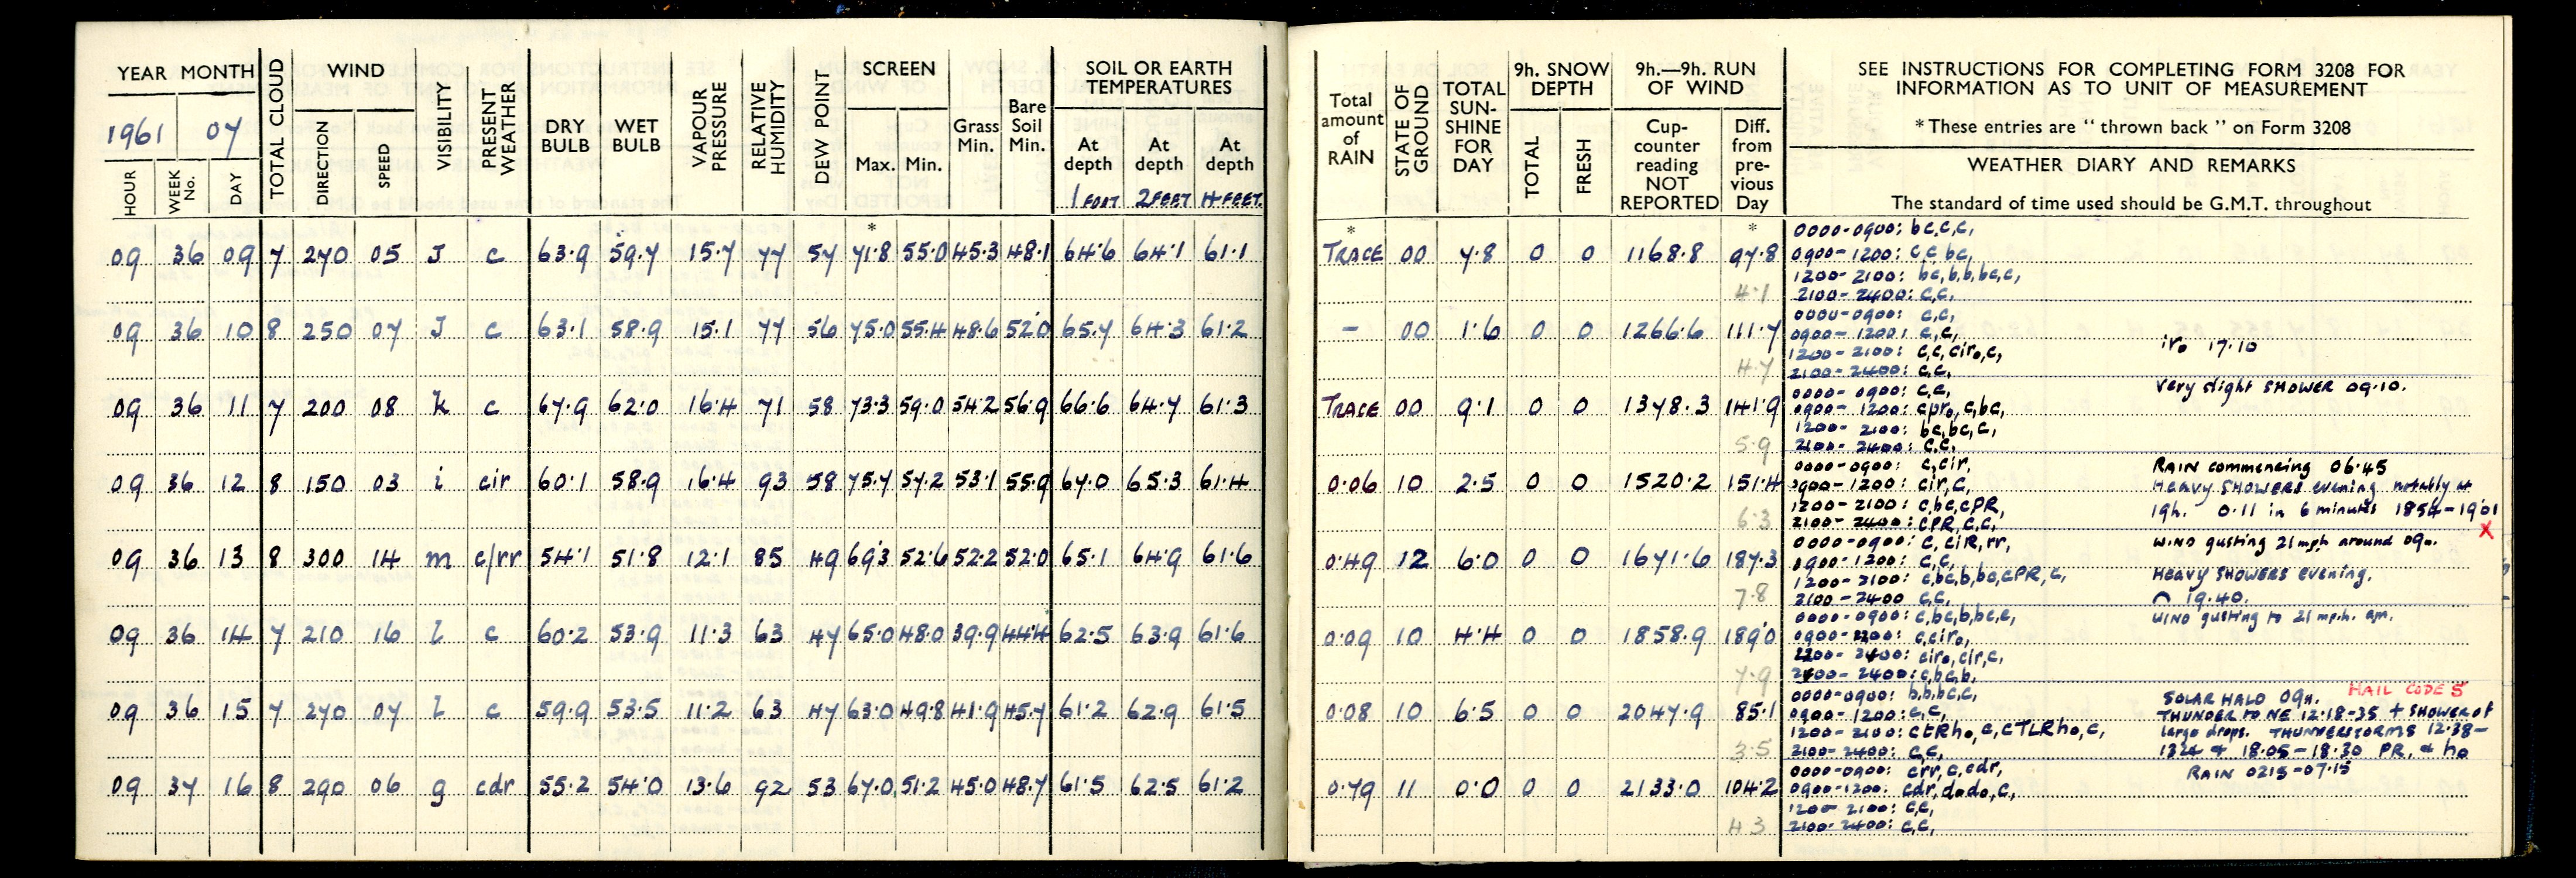 YEAR MONTH TOTAL CLOUD WIND VISIBILITY PRESENT WEATHER DRY BULB WET BULB VAPOUR PRESSURE RELATIVE HUMIDITY DEW POINT SCREEN Grass Min. Bare Soil Min. SOIL OR EARTH TEMPERATURES
1961 07
HOUR WEEK No. DAY DIRECTION SPEED Max. Min. At depth At depth At depth
1 FOOT 2 FEET 4 FEET
* 
09 36 09 7 270 05 J c 63.9 59.7 15.7 77 57 71.8 55.0 45.3 48.1 64.6 64.1 61.1
09 36 10 8 250 07 J c 63.1 58.9 15.1 77 56 75.0 55.4 48.6 52.0 65.7 64.3 61.2
09 36 11 7 200 08 k c 67.9 62.0 16.4 71 58 73.3 59.0 54.2 56.9 66.6 64.7 61.3
09 36 12 8 150 03 i cir 60.1 58.9 16.4 93 58 75.7 57.2 53.1 55.9 67.0 65.3 61.4
09 36 13 8 300 14 m c/rr 54.1 51.8 12.1 85 49 69.3 52.6 52.2 52.0 65.1 64.9 61.6
09 36 14 7 210 16 l c 60.2 53.9 11.3 63 47 65.0 48.0 39.9 44.4 62.5 63.9 61.6
09 36 15 7 270 07 l c 59.9 53.5 11.2 63 47 63.0 49.8 41.9 45.7 61.2 62.9 61.5
09 37 16 8 290 06 g cdr 55.2 54.0 13.6 92 53 67.0 51.2 45.0 48.7 61.5 62.5 61.2
Total amount of RAIN STATE OF GROUND TOTAL SUN-SHINE FOR DAY 9h. SNOW DEPTH 9h.—9h. RUN OF WIND
TOTAL FRESH Cup-counter reading NOT REPORTED Diff. from pre-vious Day
SEE INSTRUCTIONS FOR COMPLETING FORM 3208 FOR
INFORMATION AS TO UNIT OF MEASUREMENT
* These entries are "thrown back" on Form 3208
WEATHER DIARY AND REMARKS
The standard of time used should be G.M.T. throughout
* *
0000-0900: bc,c,c,
TRACE 00 7.8 0 0 1168.8 97.8 0900-1200: c,c,bc,
1200-2100: bc,b,b,bc,c,
4.1 2100-2400: c,c,
0000-0900: c,c,
- 00 1.6 0 0 1266.6 111.7 0900-1200: c,c,
1200-2100: c,c,cir₀,c, ir₀ 17.10
4.7 2100-2400: c,c,
0000-0900: c,c, Very slight SHOWER 09.10.
TRACE 00 9.1 0 0 1378.3 141.9 0900-1200: cpr₀,c,bc,
1200-2100: bc,bc,c,
5.9 2100-2400: c,c,
0000-0900: c,cir, RAIN commencing 06.45
0.06 10 2.5 0 0 1520.2 151.4 0900-1200: cir,c, HEAVY SHOWERS evening notably at
1200-2100: c,bc,cPR, 19h. 0.11 in 6 minutes 1854-1901
6.3 2100-2400: cPR,c,c, X
0000-0900: c,ciR,rr, WIND gusting 21mph around 09h.
0.49 12 6.0 0 0 1671.6 187.3 0900-1200: c,c,
1200-2100: c,bc,b,bc,cPR,c, HEAVY SHOWERS evening.
7.8 2100-2400 c,c, ⌒ 19.40.
0000-0900: c,bc,b,bc,c, WIND gusting to 21 mp.h. am.
0.09 10 4.4 0 0 1858.9 189.0 0900-: c,cir₀,
-2400: cir₀,cir,c,
7.9 -2400: c,bc,b,
0000-0900: b,b,bc,c, SOLAR HALO 09h. HAIL CODE 5
0.08 10 6.5 0 0 2047.9 85.1 0900-1200: c,c, THUNDER TO NE 12.18-35 + SHOWER of
1200-2100: ctRh₀,c,cTLRh₀,c, large drops. THUNDERSTORMS 12.38-
3.5 2100-2400: c,c, 1324 + 18.05-18.30 PR, & h₀
0000-0900: crr,c,cdr, RAIN 0215-07.15
0.79 11 0.0 0 0 2133.0 104.2 0900-1200: cdr,d₀d₀,c,
1200-2100: c,c,
4.3 2100-2400: c,c,